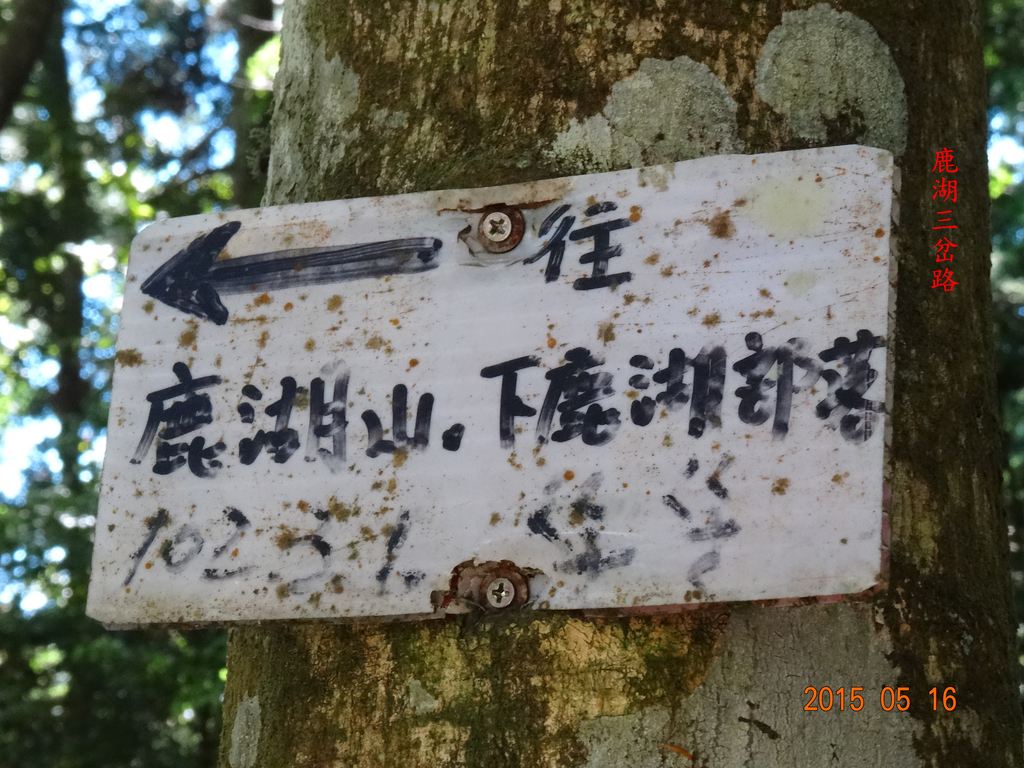 往
鹿湖山．下鹿湖部落
102.3.1
鹿湖三岔路
2015 05 16